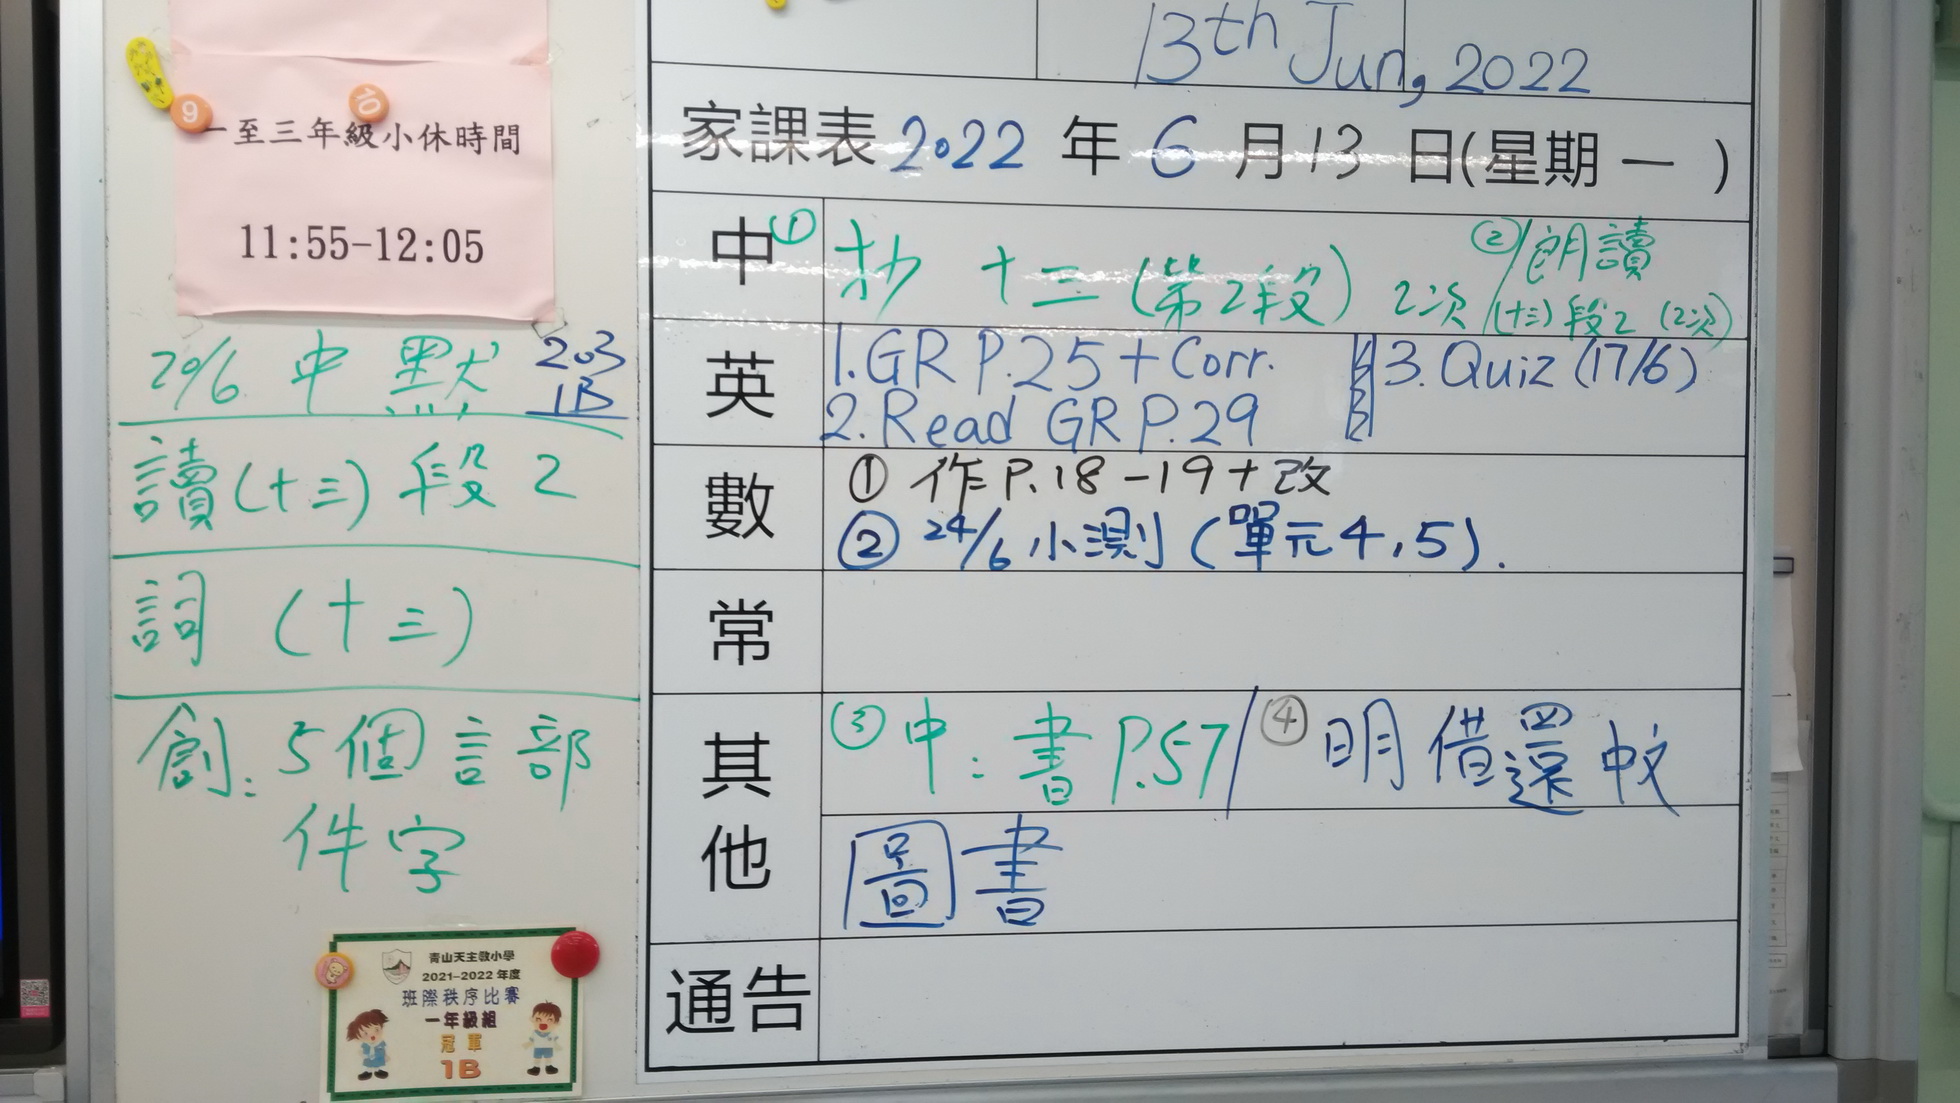 一至三年級小休時間
11:55-12:05
9
10
29/6 中 默
203
1B
讀(十三) 段 2
詞 (十三)
創: 5個 言 部
件字
青山天主教小學
2021-2022 年度
班際秩序比賽
一年級組
冠軍
1B
13th Jun, 2022
家課表 2022 年 6 月 13 日(星期一)
中 ① 抄 十三 (第2段) 2次 / ② 朗讀
(十三) 段2 (2次)
英 1. GR P.25 + Corr. 3. Quiz (17/6)
2. Read GR P.29
數 ① 作 P.18-19+改
② 24/6 小測 (單元4,5).
常
其他 ③ 中: 書 P.57 / ④ 明借還中文
圖書
通告